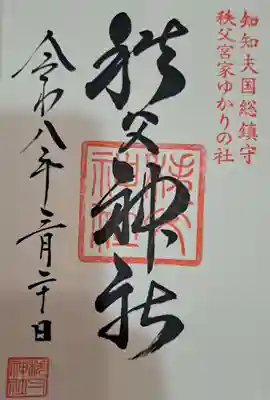 知知夫国総鎮守
秩父宮家ゆかりの社
秩父神社
令和八年三月二十日
秩父神社